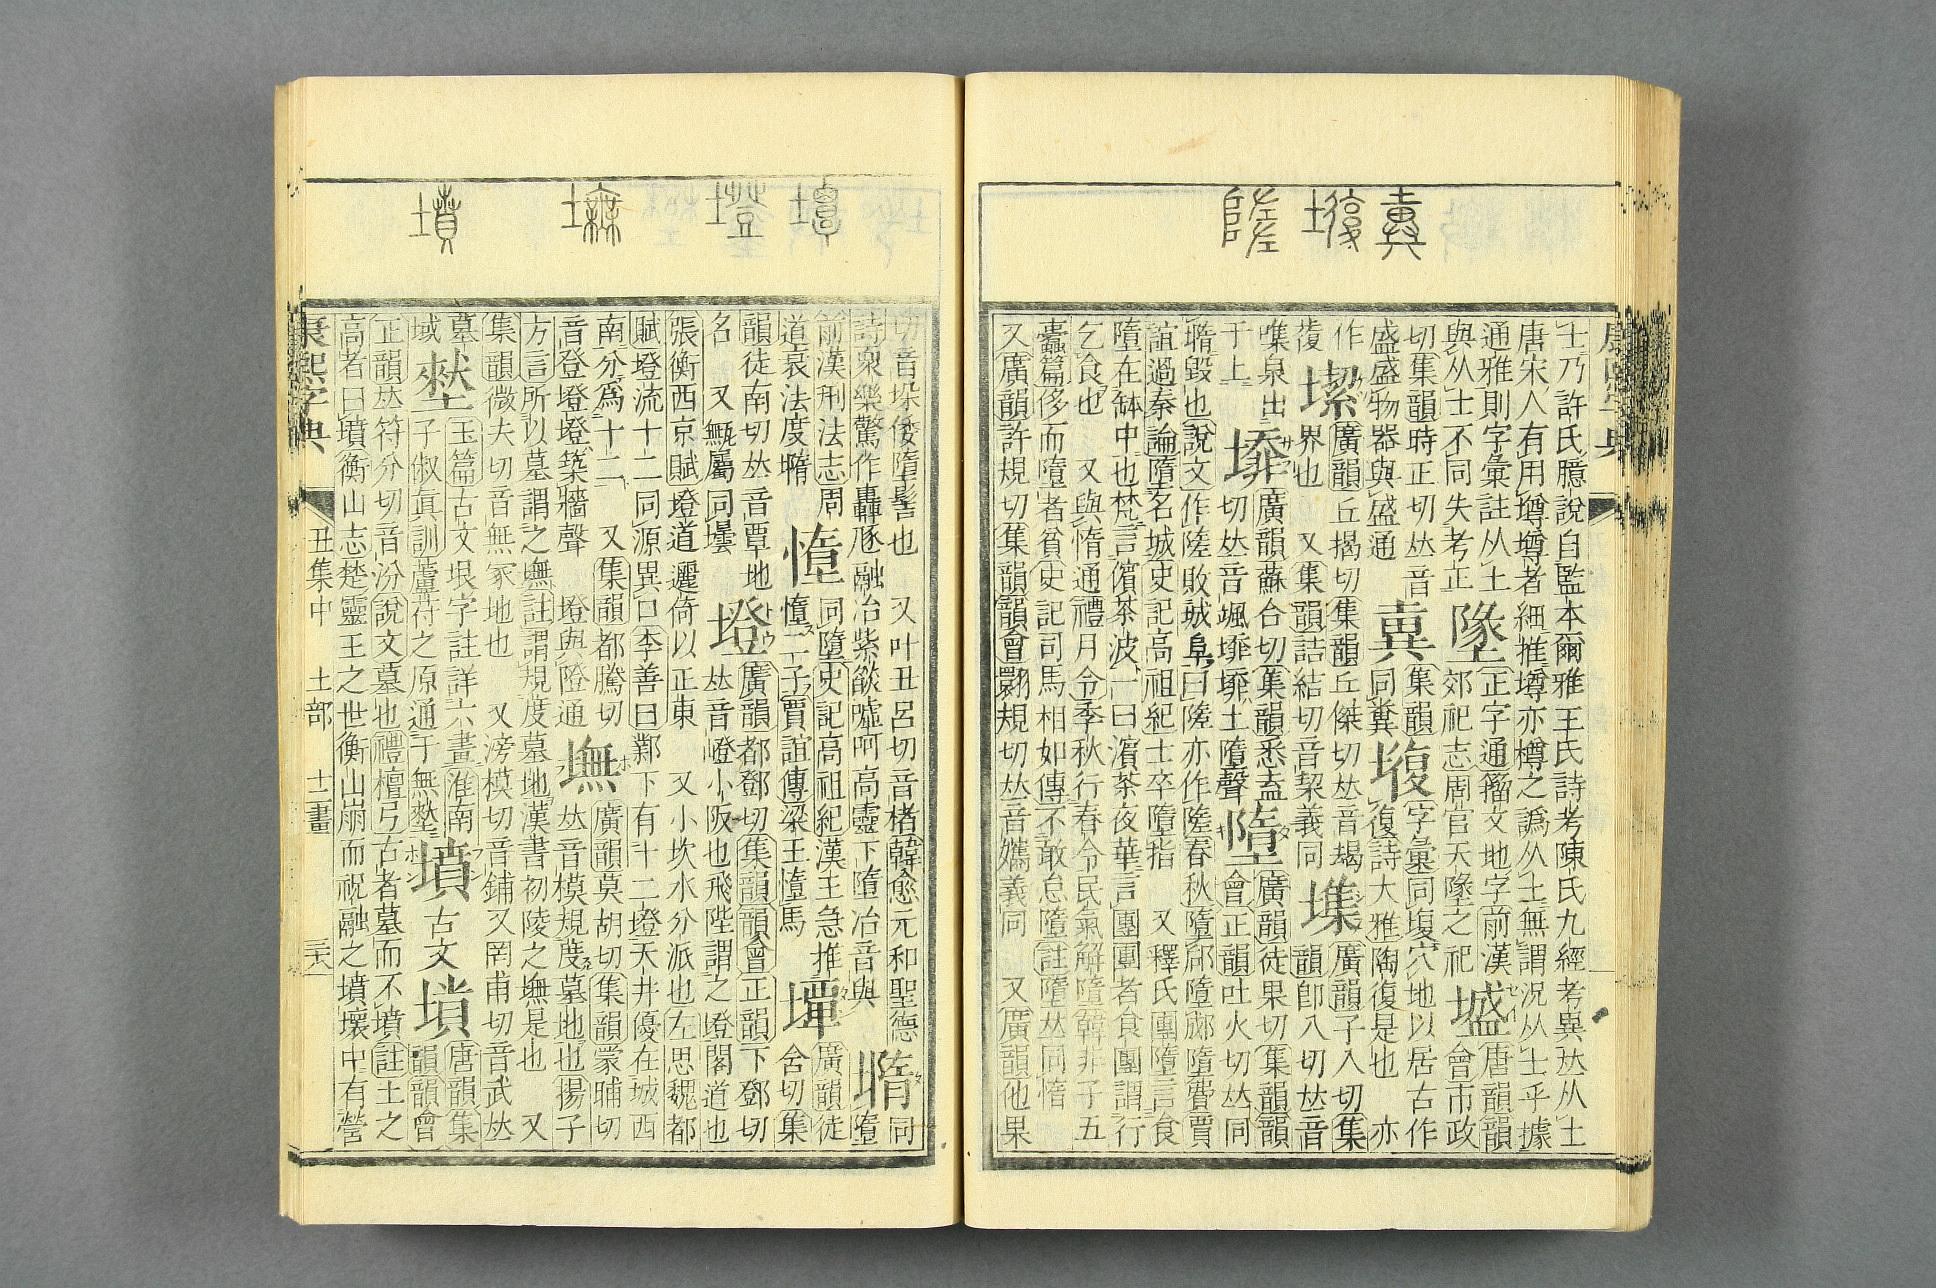 士乃許氏臆說自監本爾雅王氏詩考陳氏九經考異𠀤从士
唐宋人有用壿壿者細推壿亦樽之譌从土無謂況从士乎據
通雅則字彙註从土
與从士不同失考正
墜
正字通籀文地字前漢
郊祀志周官天墜之祀
墭
唐韻韻
會市政
切集韻時正切𠀤音
盛盛物器與盛通
集韻
同糞
字彙同㙇穴地以居古作
復詩大雅陶復是也 亦
作
復
廣韻丘揭切集韻丘傑切𠀤音朅
界也 又集韻詰結切音契義同
廣韻子入切集
韻卽入切𠀤音
噍泉出
于上
廣韻蘇合切集韻悉盍
切𠀤音颯
墮
廣韻徒果切集韻韻
會正韻吐火切𠀤同
墯毀也說文作隓敗城𨸏曰隓亦作隓春秋墮郈墮郕墮費賈
誼過秦論墮名城史記高祖紀士卒墮指 又釋氏團墮言食
墮在缽中也梵言儐茶波一曰濱茶夜華言團團者食團謂行
乞食也 又與惰通禮月令季秋行春令民氣解墮韓非子五
蠹篇侈而墮者貧史記司馬相如傳不敢怠墮註墮𠀤同惰
又廣韻許規切集韻韻會翾規切𠀤音孈義同 又廣韻他果
切音垜倭墮髻也 又叶丑呂切音楮韓愈元和聖德
詩衆樂驚作轟豗融冶紫燄噓呵高靈下墮冶音與
墯
同
墮
前漢刑法志周
道衰法度墯
同墮史記高祖紀漢王急推
墮二子賈誼傳梁王墮馬
墰
廣韻徒
含切集
韻徒南切𠀤音覃地
名 又甒屬同壜
墱
廣韻都鄧切集韻韻會正韻下鄧切
𠀤音嶝小阪也飛陛謂之墱閣道也
張衡西京賦墱道邐倚以正東 又小坎水分派也左思魏都
賦墱流十二同源異口李善曰鄴下有十二墱天井優在城西
南分爲十二 又集韻都騰切
音登墱墱築牆聲 墱與隥通
墲
廣韻莫胡切集韻蒙晡切
𠀤音模規度墓地也揚子
方言所以墓謂之墲註謂規度墓地漢書初陵之墲是也 又
集韻微夫切音無冢地也 又滂模切音鋪又罔甫切音武𠀤
墓
域
玉篇古文垠字註詳六畫淮南
子俶眞訓蘆苻之原通于無
墳
古文
唐韻集
韻韻會
正韻𠀤符分切音汾說文墓也禮檀弓古者墓而不墳註土之
高者曰墳衡山志楚靈王之世衡山崩而祝融之墳壞中有營
康熙字典 丑集中 土部 十二畫